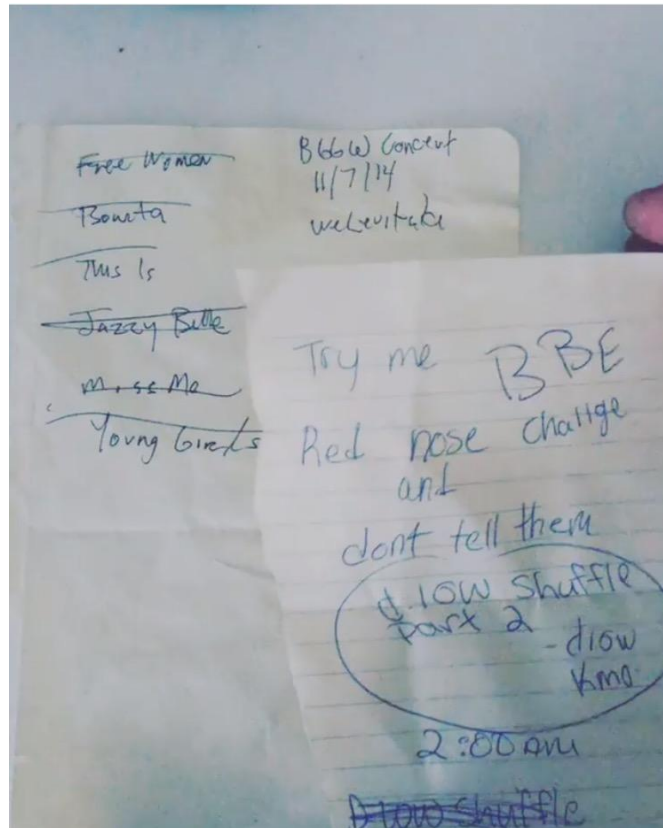 Free Women
Bonita
This Is
Jazzy Belle
Miss Me
Young Girls
BGGW Concert
11/7/14
Try me BBE
Red nose challge
and
dont tell them
d low shuffle
part 2
- dlow
kmo
2:00 AM
D low Shuffle